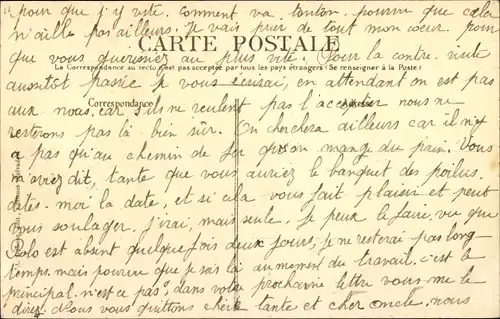 pour que j'y vite, comment va tonton. pourvu que cela
n'aille pas ailleurs. Je vais prier de tout mon cœur. pour
CARTE POSTALE
que vous guérissiez au plus vite. Pour la contre. visite
La Correspondance au recto n'est pas acceptée par tous les pays étrangers (Se renseigner à la Poste)
aussitôt passée je vous écrirai, en attendant on est pas
Correspondance
aux nous, car s'ils ne veulent pas l'accepter nous ne
resterons pas là bien sûr. On cherchera ailleurs car il n'y
a pas qu'au chemin de fer qu'on mange du pain. Vous
m'aviez dit, tante que vous auriez le banquet des poilus.
dites. moi la date, et si cela vous fait plaisir et peut
vous soulager. j'irai, mais seule. Je peux le faire, vu que
Lolo est absent quelque fois deux jours, je ne resterai pas long-
temps. mais pourvu que je sois là au moment du travail. c'est le
principal. n'est ce pas, dans votre prochaine lettre vous me le
direz. Nous vous quittons chère tante et cher oncle, nous